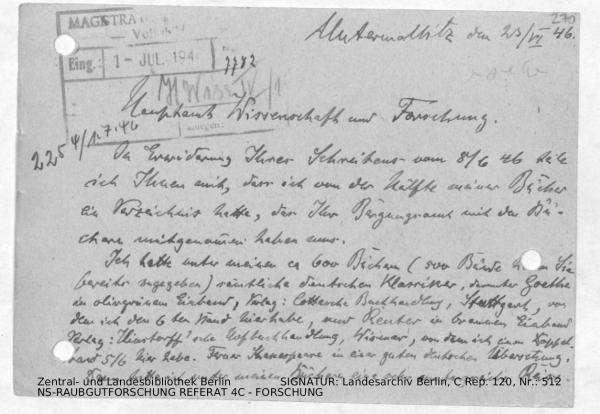 270
MAGISTRA
Eing.: 1 - JUL. 194
7782
Untermaßfeld den 23/VI 46.
Hauptamt Wissenschaft und Forschung.
225 4/1.7.46
In Erwiderung Ihres Schreibens vom 8/6 46 teile
ich Ihnen mit, dass ich von der Hälfte meiner Bücher
ein Verzeichnis hatte, das Ihr Bergungsamt mit den Bü-
chern mitgenommen haben muss.
Ich hatte unter meinen ca 600 Büchern (500 Bände
bereits angegeben) sämtliche deutschen Klassiker, darunter Goethe
in olivgrünem Einband, Verlag: Cottasche Buchhandlung, Stuttgart, von
dem ich den 6ten Band hier habe, und Reuter in braunem Einband
Verlag: Hinstorff'sche Hofbuchhandlung, Wismar, von dem ich einen Doppel-
band 5/6 hier habe. Ferner Shakespeare in einer guten deutschen Übersetzung.
Zentral- und Landesbibliothek Berlin SIGNATUR: Landesarchiv Berlin, C Rep. 120, Nr.: 512
NS-RAUBGUTFORSCHUNG REFERAT 4C - FORSCHUNG